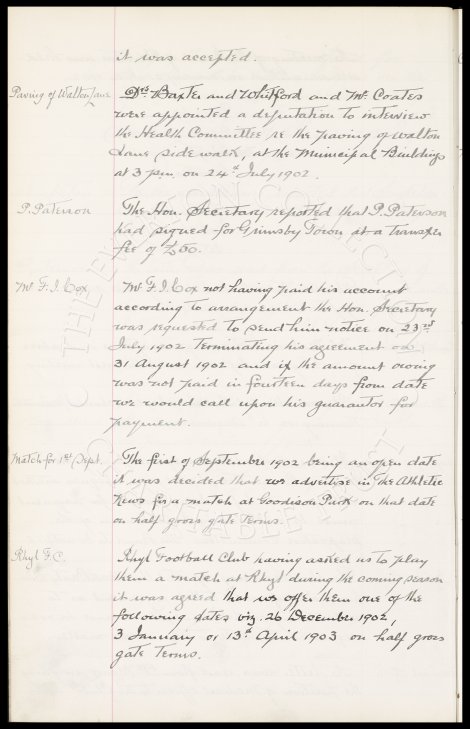 it was accepted.
Paving of Walton Lane
Drs Baxter and Whitford and Mr Coates
were appointed a deputation to interview
the Health Committee re the paving of Walton
Lane side walk, at the Municipal Buildings
at 3 p.m. on 24th July 1902.
P. Paterson
The Hon. Secretary reported that P. Paterson
had signed for Grimsby Town at a transfer
fee of £50.
Mr F. J. Cox
Mr F. J. Cox not having paid his account
according to arrangement the Hon. Secretary
was requested to send him notice on 23rd
July 1902 terminating his agreement on
31 August 1902 and if the amount owing
was not paid in fourteen days from date
we would call upon his guarantor for
payment.
Match for 1st Sept.
The first of September 1902 being an open date
it was decided that we advertise in The Athletic
News for a match at Goodison Park on that date
on half gross gate terms.
Rhyl F.C.
Rhyl Football Club having asked us to play
them a match at Rhyl during the coming season
it was agreed that we offer them one of the
following dates viz. 26 December 1902,
3 January or 13th April 1903 on half gross
gate terms.